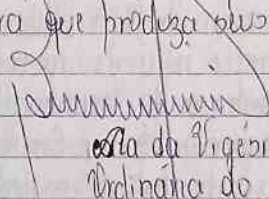 ra que produza seus
Ata da Vigési
Ordinária do